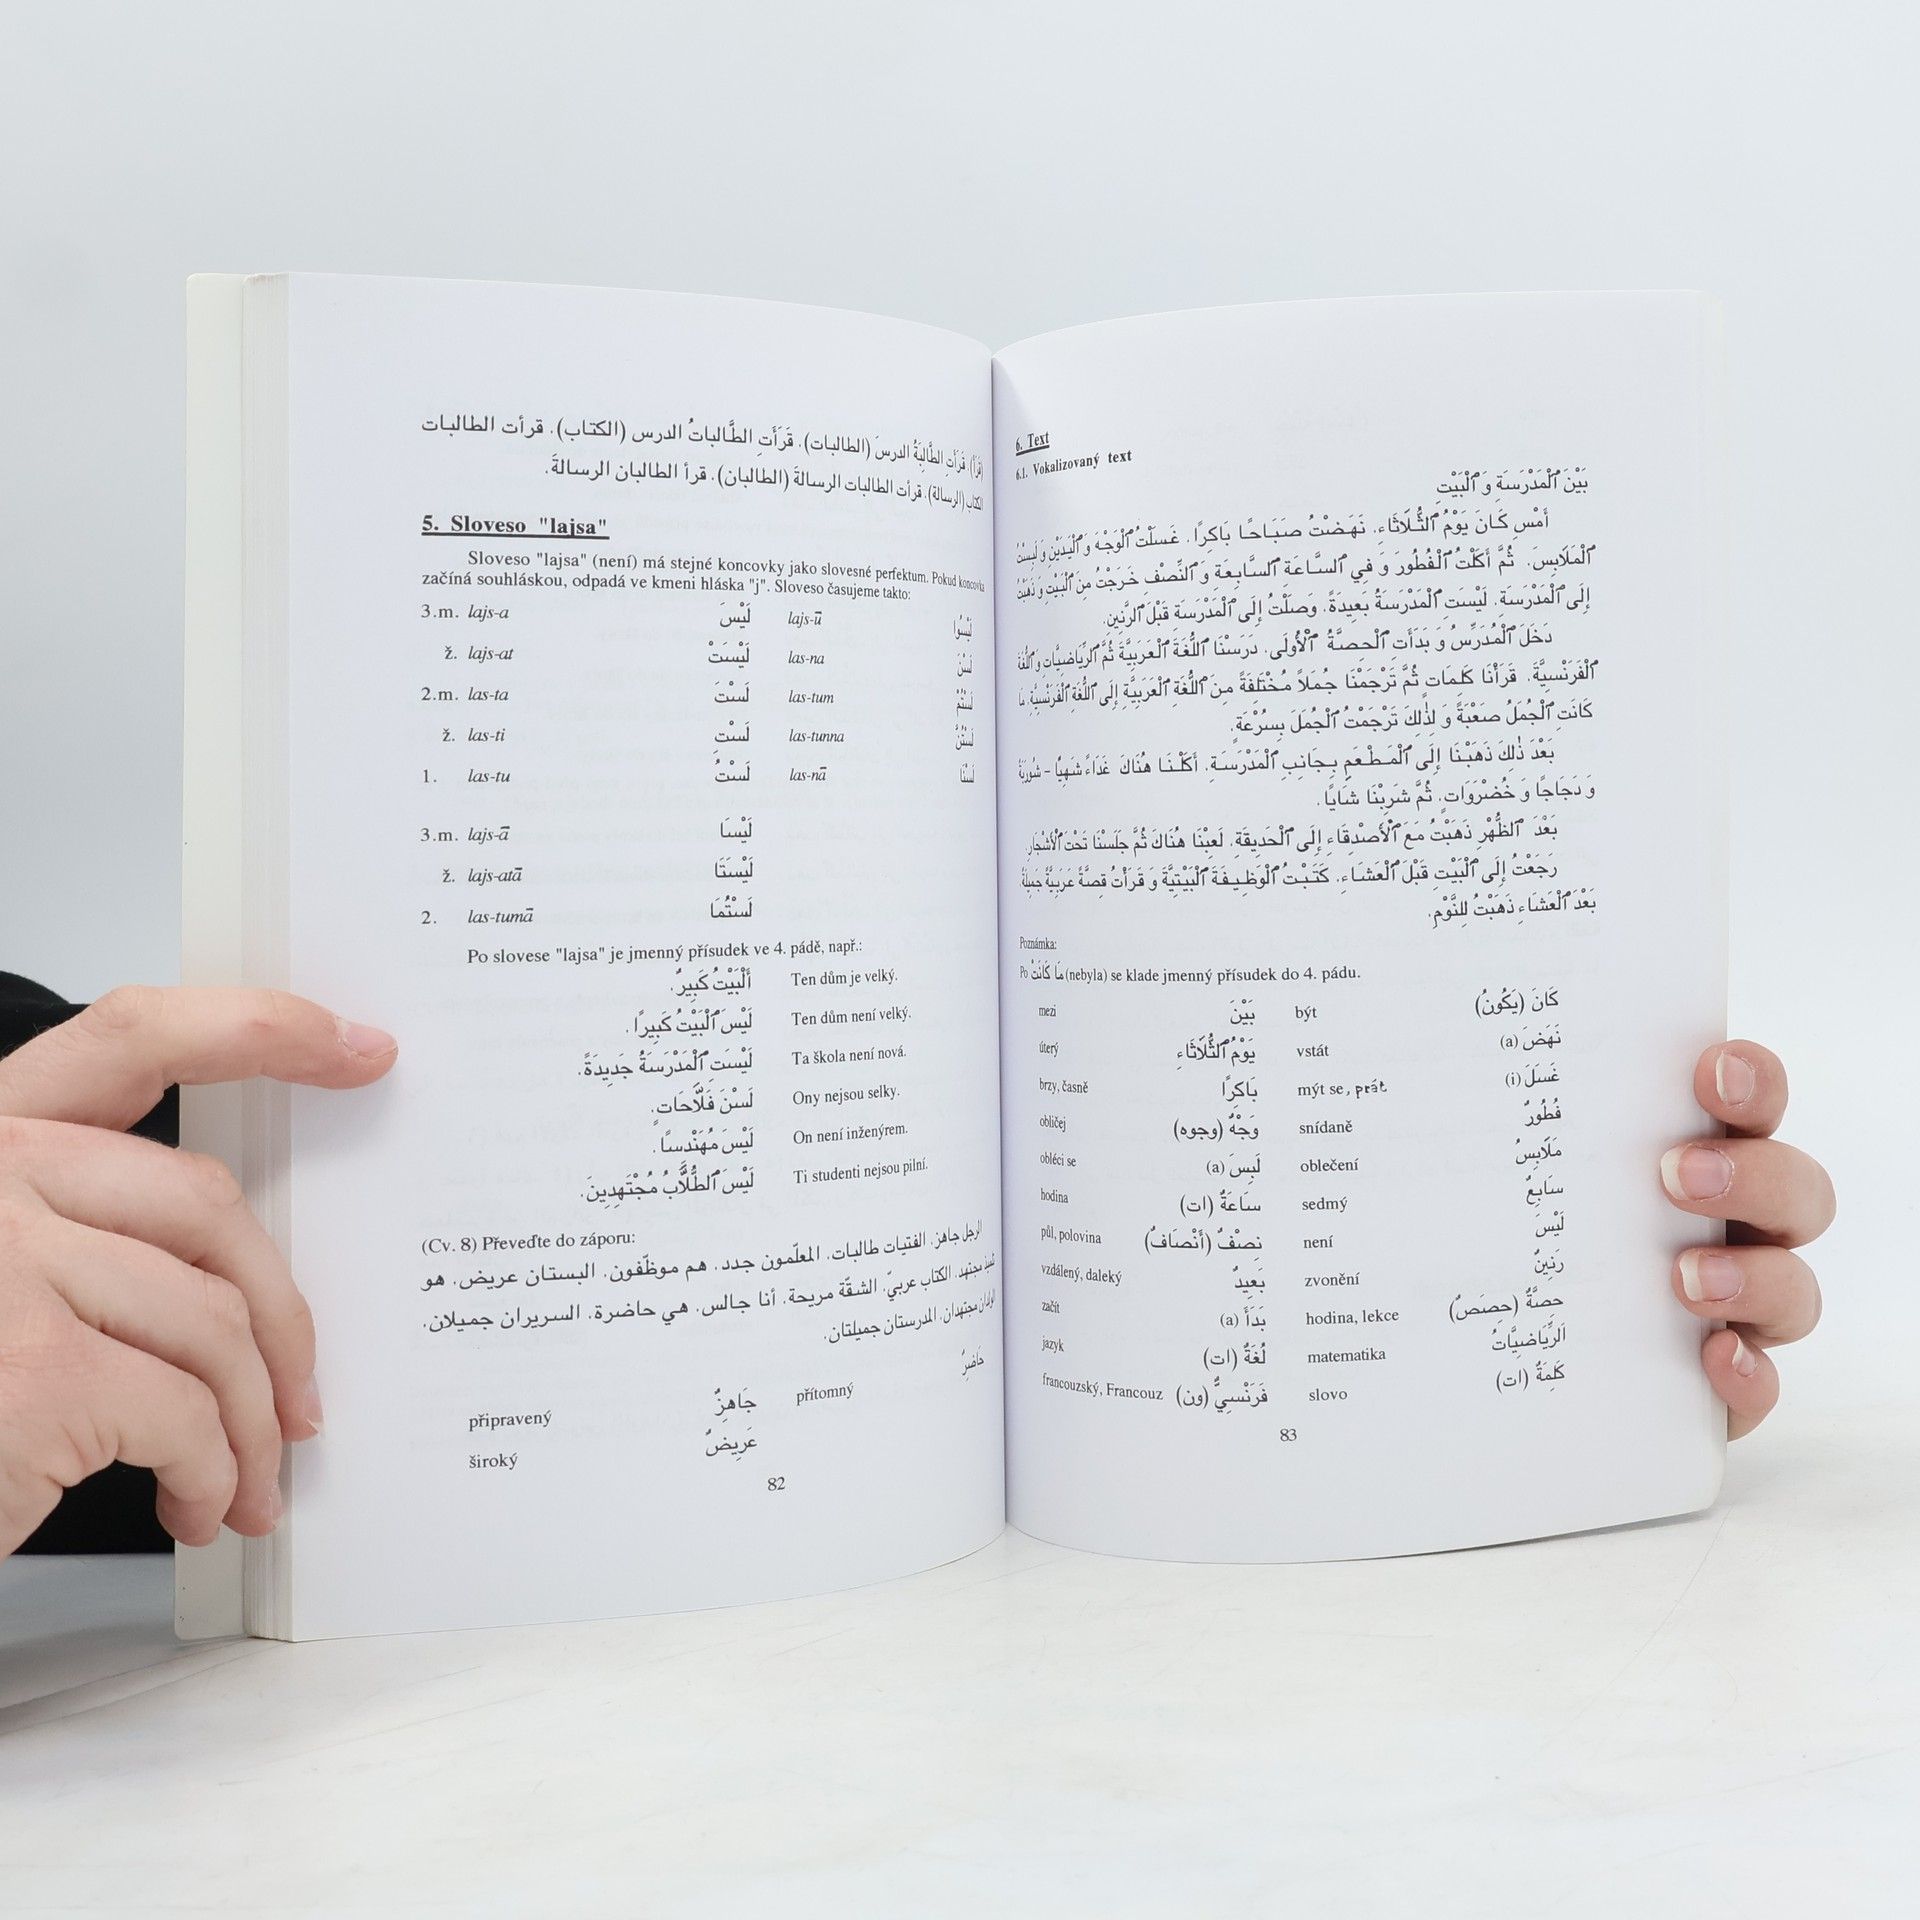 (قرأ). قَرَأَتِ الطَّالِبَةُ الدرسَ (الطالبات). قَرَأَتِ الطَّالِبَاتُ الدرس (الكتاب). قرأت الطالبات
الكتاب (الرسالة). قرأت الطالبات الرسالةَ (الطالبان). قرأ الطالبان الرسالةَ.
5. Sloveso "lajsa"
Sloveso "lajsa" (není) má stejné koncovky jako slovesné perfektum. Pokud koncovka
začíná souhláskou, odpadá ve kmeni hláska "j". Sloveso časujeme takto:
3.m. lajs-a لَيْسَ lajs-ū لَيْسُوا
ž. lajs-at لَيْسَتْ las-na لَسْنَ
2.m. las-ta لَسْتَ las-tum لَسْتُمْ
ž. las-ti لَسْتِ las-tunna لَسْتُنَّ
1. las-tu لَسْتُ las-nā لَسْنَا
3.m. lajs-ā لَيْسَا
ž. lajs-atā لَيْسَتَا
2. las-tumā لَسْتُمَا
Po slovese "lajsa" je jmenný přísudek ve 4. pádě, např.:
أَلْبَيْتُ كَبِيرٌ. Ten dům je velký.
لَيْسَ ٱلْبَيْتُ كَبِيرًا. Ten dům není velký.
لَيْسَتِ ٱلْمَدْرَسَةُ جَدِيدَةً. Ta škola není nová.
لَسْنَ فَلَّاحَاتٍ. Ony nejsou selky.
لَيْسَ مُهَنْدِسًا. On není inženýrem.
لَيْسَ ٱلطُّلَّابُ مُجْتَهِدِينَ. Ti studenti nejsou pilní.
(Cv. 8) Převeďte do záporu:
الرجل جاهز. الفتيات طالبات. المعلّمون جدد. هم موظّفون. البستان عريض. هو
تلميذ مجتهد. الكتاب عربيّ. الشقّة مريحة. أنا جالس. هي حاضرة. السريران جميلان.
الولدان مجتهدان. المدرستان جميلتان.
připravený جَاهِزٌ přítomný حَاضِرٌ
široký عَرِيضٌ
82
6. Text
6.1. Vokalizovaný text
بَيْنَ ٱلْمَدْرَسَةِ وَ ٱلْبَيْتِ
أَمْسِ كَانَ يَوْمُ ٱلثُّلَاثَاءِ. نَهَضْتُ صَبَاحًا بَاكِرًا. غَسَلْتُ ٱلْوَجْهَ وَ ٱلْيَدَيْنِ وَ لَبِسْتُ
ٱلْمَلَابِسَ. ثُمَّ أَكَلْتُ ٱلْفُطُورَ وَ فِي ٱلسَّاعَةِ ٱلسَّابِعَةِ وَ ٱلنِّصْفِ خَرَجْتُ مِنَ ٱلْبَيْتِ وَ ذَهَبْتُ
إِلَى ٱلْمَدْرَسَةِ. لَيْسَتِ ٱلْمَدْرَسَةُ بَعِيدَةً. وَصَلْتُ إِلَى ٱلْمَدْرَسَةِ قَبْلَ ٱلرَّنِينِ.
دَخَلَ ٱلْمُدَرِّسُ وَ بَدَأَتِ ٱلْحِصَّةُ ٱلْأُولَى. دَرَسْنَا ٱللُّغَةَ ٱلْعَرَبِيَّةَ ثُمَّ ٱلرِّيَاضِيَّاتِ وَ ٱللُّغَةَ
ٱلْفَرَنْسِيَّةَ. قَرَأْنَا كَلِمَاتٍ ثُمَّ تَرْجَمْنَا جُمَلاً مُخْتَلِفَةً مِنَ ٱللُّغَةِ ٱلْعَرَبِيَّةِ إِلَى ٱللُّغَةِ ٱلْفَرَنْسِيَّةِ. مَا
كَانَتِ ٱلْجُمَلُ صَعْبَةً وَ لِذٰلِكَ تَرْجَمْتُ ٱلْجُمَلَ بِسُرْعَةٍ.
بَعْدَ ذٰلِكَ ذَهَبْنَا إِلَى ٱلْمَطْعَمِ بِجَانِبِ ٱلْمَدْرَسَةِ. أَكَلْنَا هُنَاكَ غَدَاءً شَهِيًّا - شُورَبَةً
وَ دَجَاجًا وَ خُضْرَوَاتٍ. ثُمَّ شَرِبْنَا شَايًا.
بَعْدَ ٱلظُّهْرِ ذَهَبْتُ مَعَ ٱلْأَصْدِقَاءِ إِلَى ٱلْحَدِيقَةِ. لَعِبْنَا هُنَاكَ ثُمَّ جَلَسْنَا تَحْتَ ٱلْأَشْجَارِ.
رَجَعْتُ إِلَى ٱلْبَيْتِ قَبْلَ ٱلْعَشَاءِ. كَتَبْتُ ٱلْوَظِيفَةَ ٱلْبَيْتِيَّةَ وَ قَرَأْتُ قِصَّةً عَرَبِيَّةً جَمِيلَةً.
بَعْدَ ٱلْعَشَاءِ ذَهَبْتُ لِلنَّوْمِ.
Poznámka:
Po مَا كَانَتْ (nebyla) se klade jmenný přísudek do 4. pádu.
mezi بَيْنَ být كَانَ (يَكُونُ)
úterý يَوْمُ ٱلثُّلَاثَاءِ vstát نَهَضَ (a)
brzy, časně بَاكِرًا mýt se, prát غَسَلَ (i)
obličej وَجْهٌ (وجوه) snídaně فُطُورٌ
obléci se لَبِسَ (a) oblečení مَلَابِسُ
hodina سَاعَةٌ (ات) sedmý سَابِعٌ
půl, polovina نِصْفٌ (أَنْصَافٌ) není لَيْسَ
vzdálený, daleký بَعِيدٌ zvonění رَنِينٌ
začít بَدَأَ (a) hodina, lekce حِصَّةٌ (حِصَصٌ)
jazyk لُغَةٌ (ات) matematika اَلرِّيَاضِيَّاتُ
francouzský, Francouz فَرَنْسِيٌّ (ون) slovo كَلِمَةٌ (ات)
83